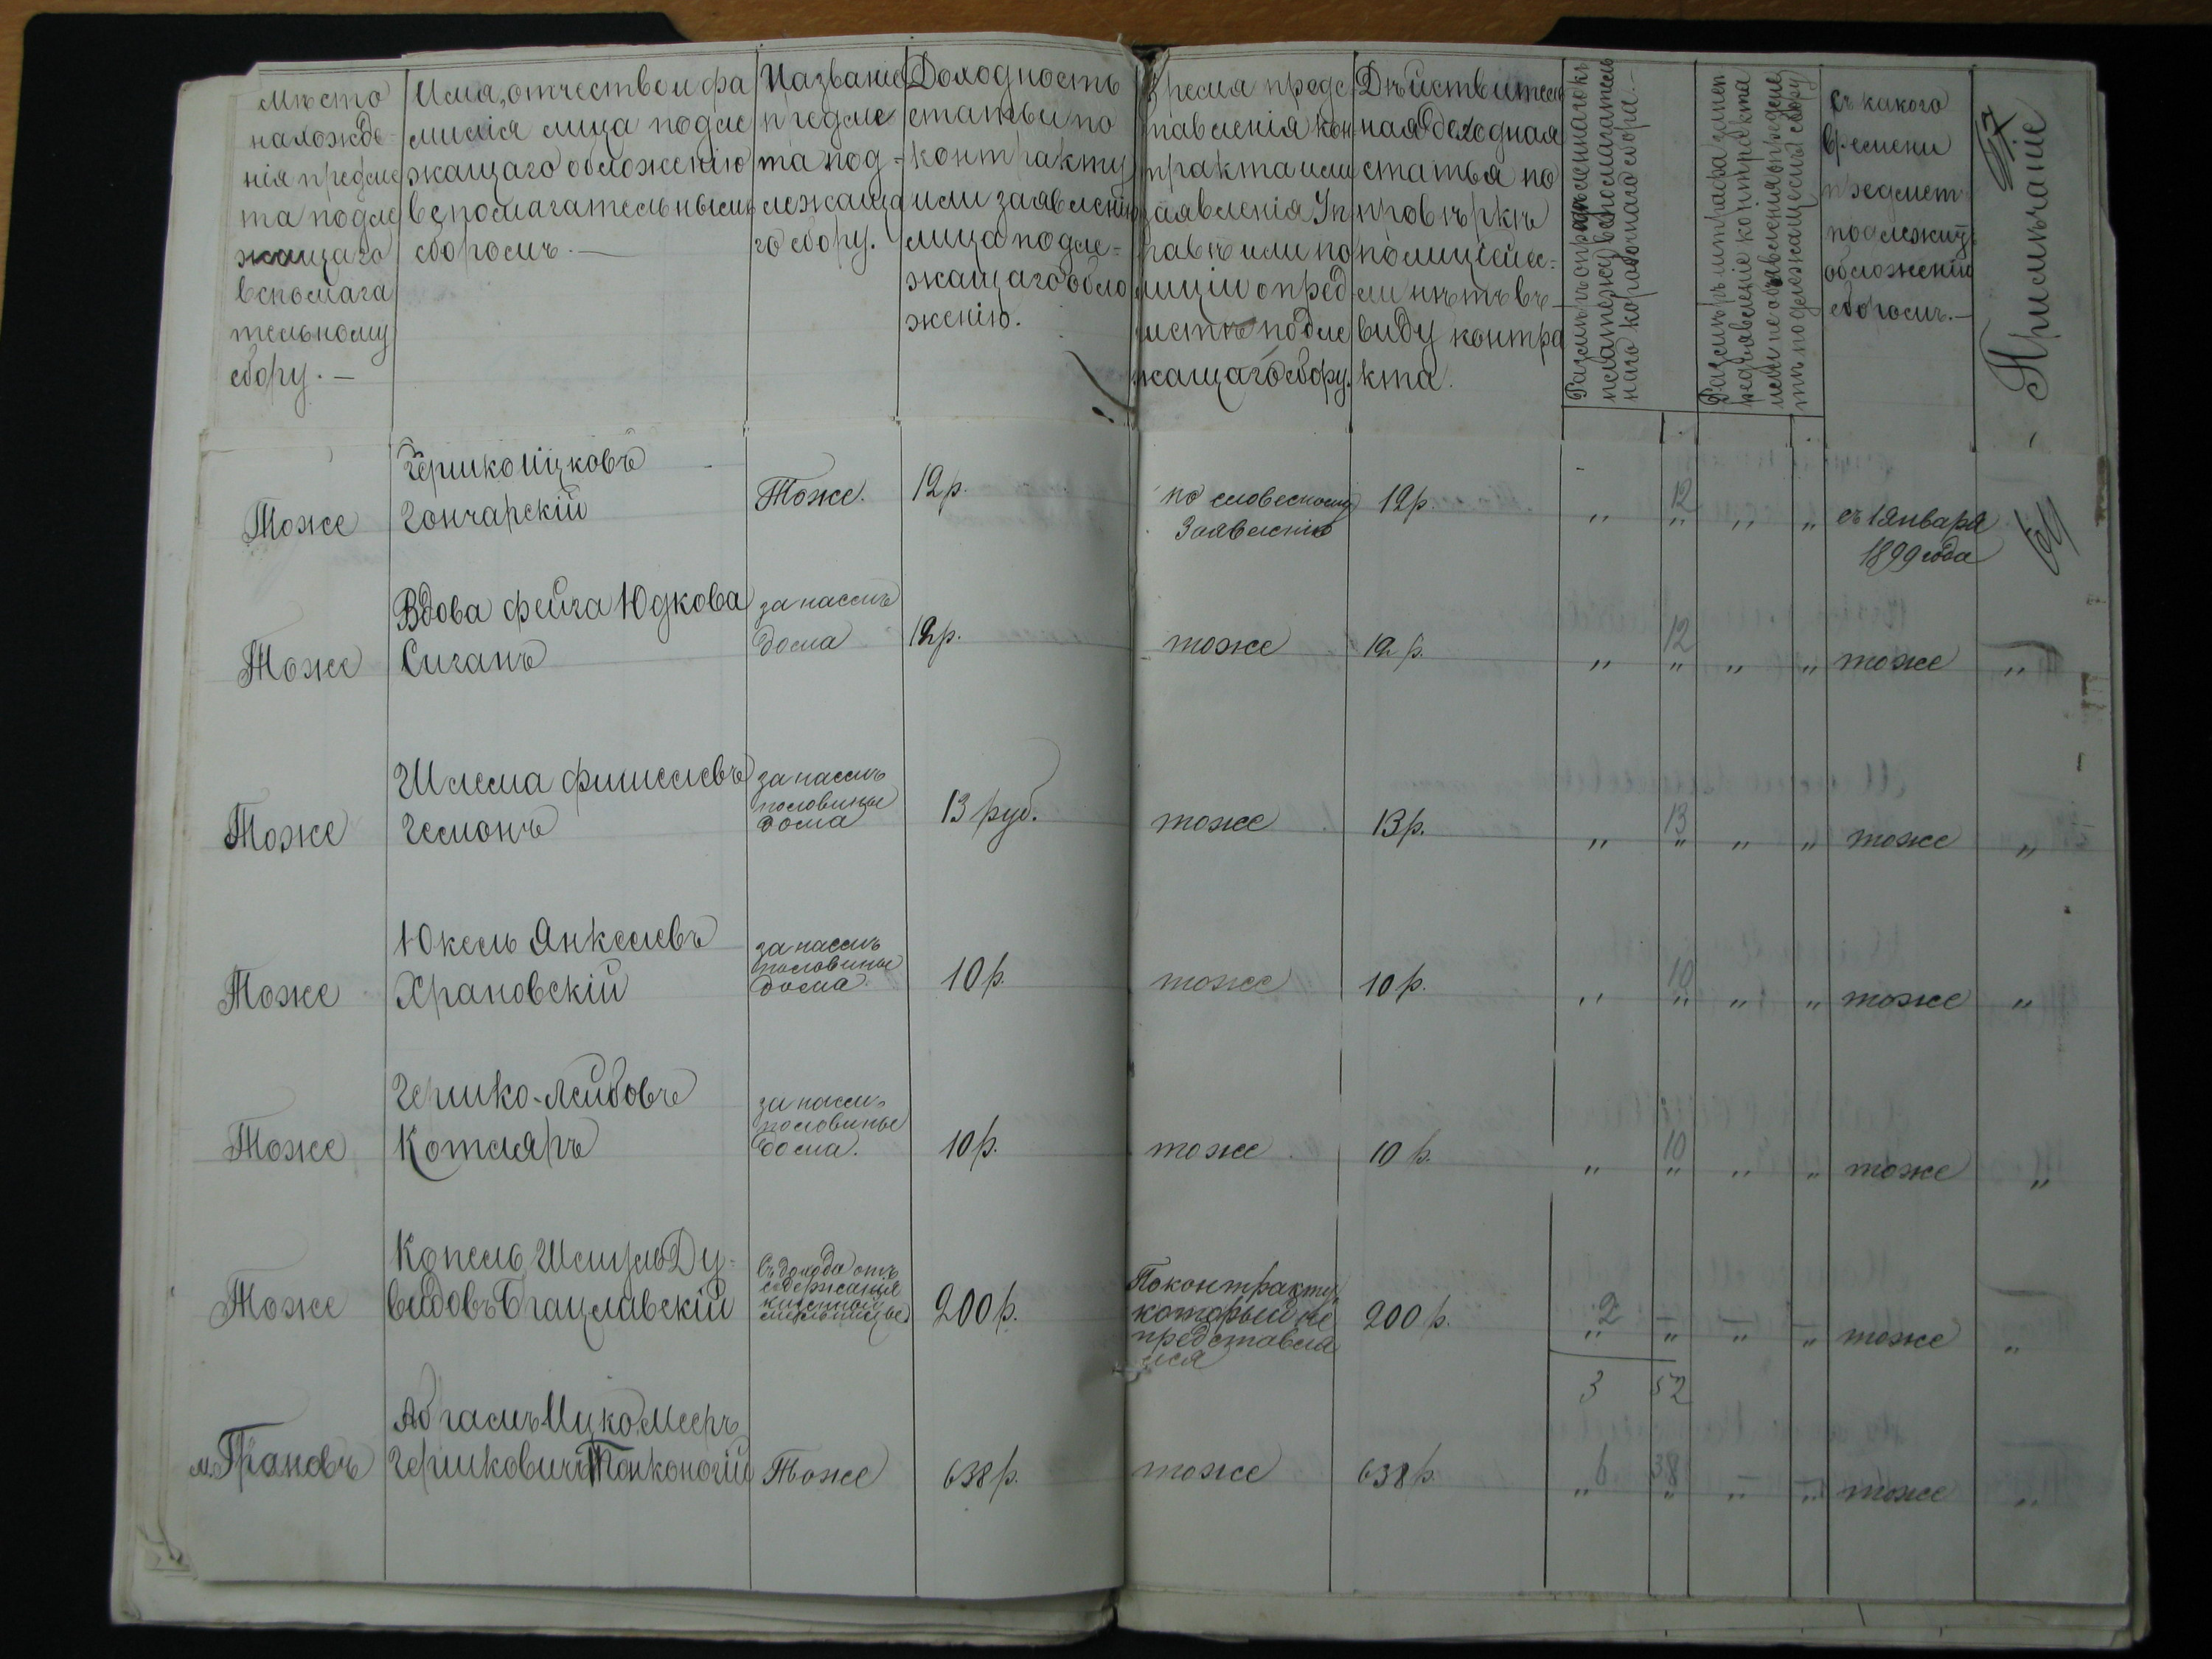 Мѣсто
нахожде-
нія предме
та подле
жащаго
вспомага
тельному
сбору. —
Имя, отчество и фа
милія лица подле
жащаго обложенію
вспомагательнымъ
сборомъ. —
Названіе
предме
та под-
лежаща
го сбору.
Доходность
статьи по
контракту
или заявленію
лица подле-
жащаго обло
женію.
Время предс
тавленія кон
тракта или
заявленія Уп
равѣ или по
лиціи о пред
метѣ подле
жащаго сбору.
Дѣйствитель
ная доходная
статья по
провѣркѣ
полиціи ес-
ли нѣтъ въ
виду контра
кта.
Размѣръ опредѣленнаго къ
платежу вспомагатель
наго коробочнаго сбора. —
Размѣръ штрафа за неп
редъявленіе контракта
или не объявленія предме
тъ подлежащ сбору
съ какого
времени
предметъ
подлежитъ
обложенію
сборомъ. —
Примѣчаніе
Тоже
Гершко Ицковъ
Гончарскій
Тоже.
12 р.
по словесному
Заявленію
12 р.
„ 12 „ „
съ 1 Января
1899 года
Тоже
Вдова Фейга Юдкова
Сиганъ
за наемъ
дома
12 р.
тоже
12 р.
„ 12 „ „
тоже
„
Тоже
Шлема Фишелевъ
Гесмонъ
за наемъ
половины
дома
13 руб.
тоже
13 р.
„ 13 „ „
тоже
„
Тоже
Юкель Янкелевъ
Храновскій
за наемъ
половины
дома
10 р.
тоже
10 р.
„ 10 „ „
тоже
„
Тоже
Гершко-Лейбовъ
Котляръ
за наемъ
половины
дома.
10 р.
тоже
10 р.
„ 10 „ „
тоже
„
Тоже
Копель Шмуль Ду-
видовъ Брацлавскій
Съ дохода отъ
содержанія
мельницы
200 р.
По контракту
который не
представля
лся
200 р.
2 – – –
тоже
„
3 52
м. Грановъ
Абрамъ Ицко Мееръ
Гершковичъ Тонконогій
Тоже
638 р.
тоже
638 р.
6 38 – –
тоже
„